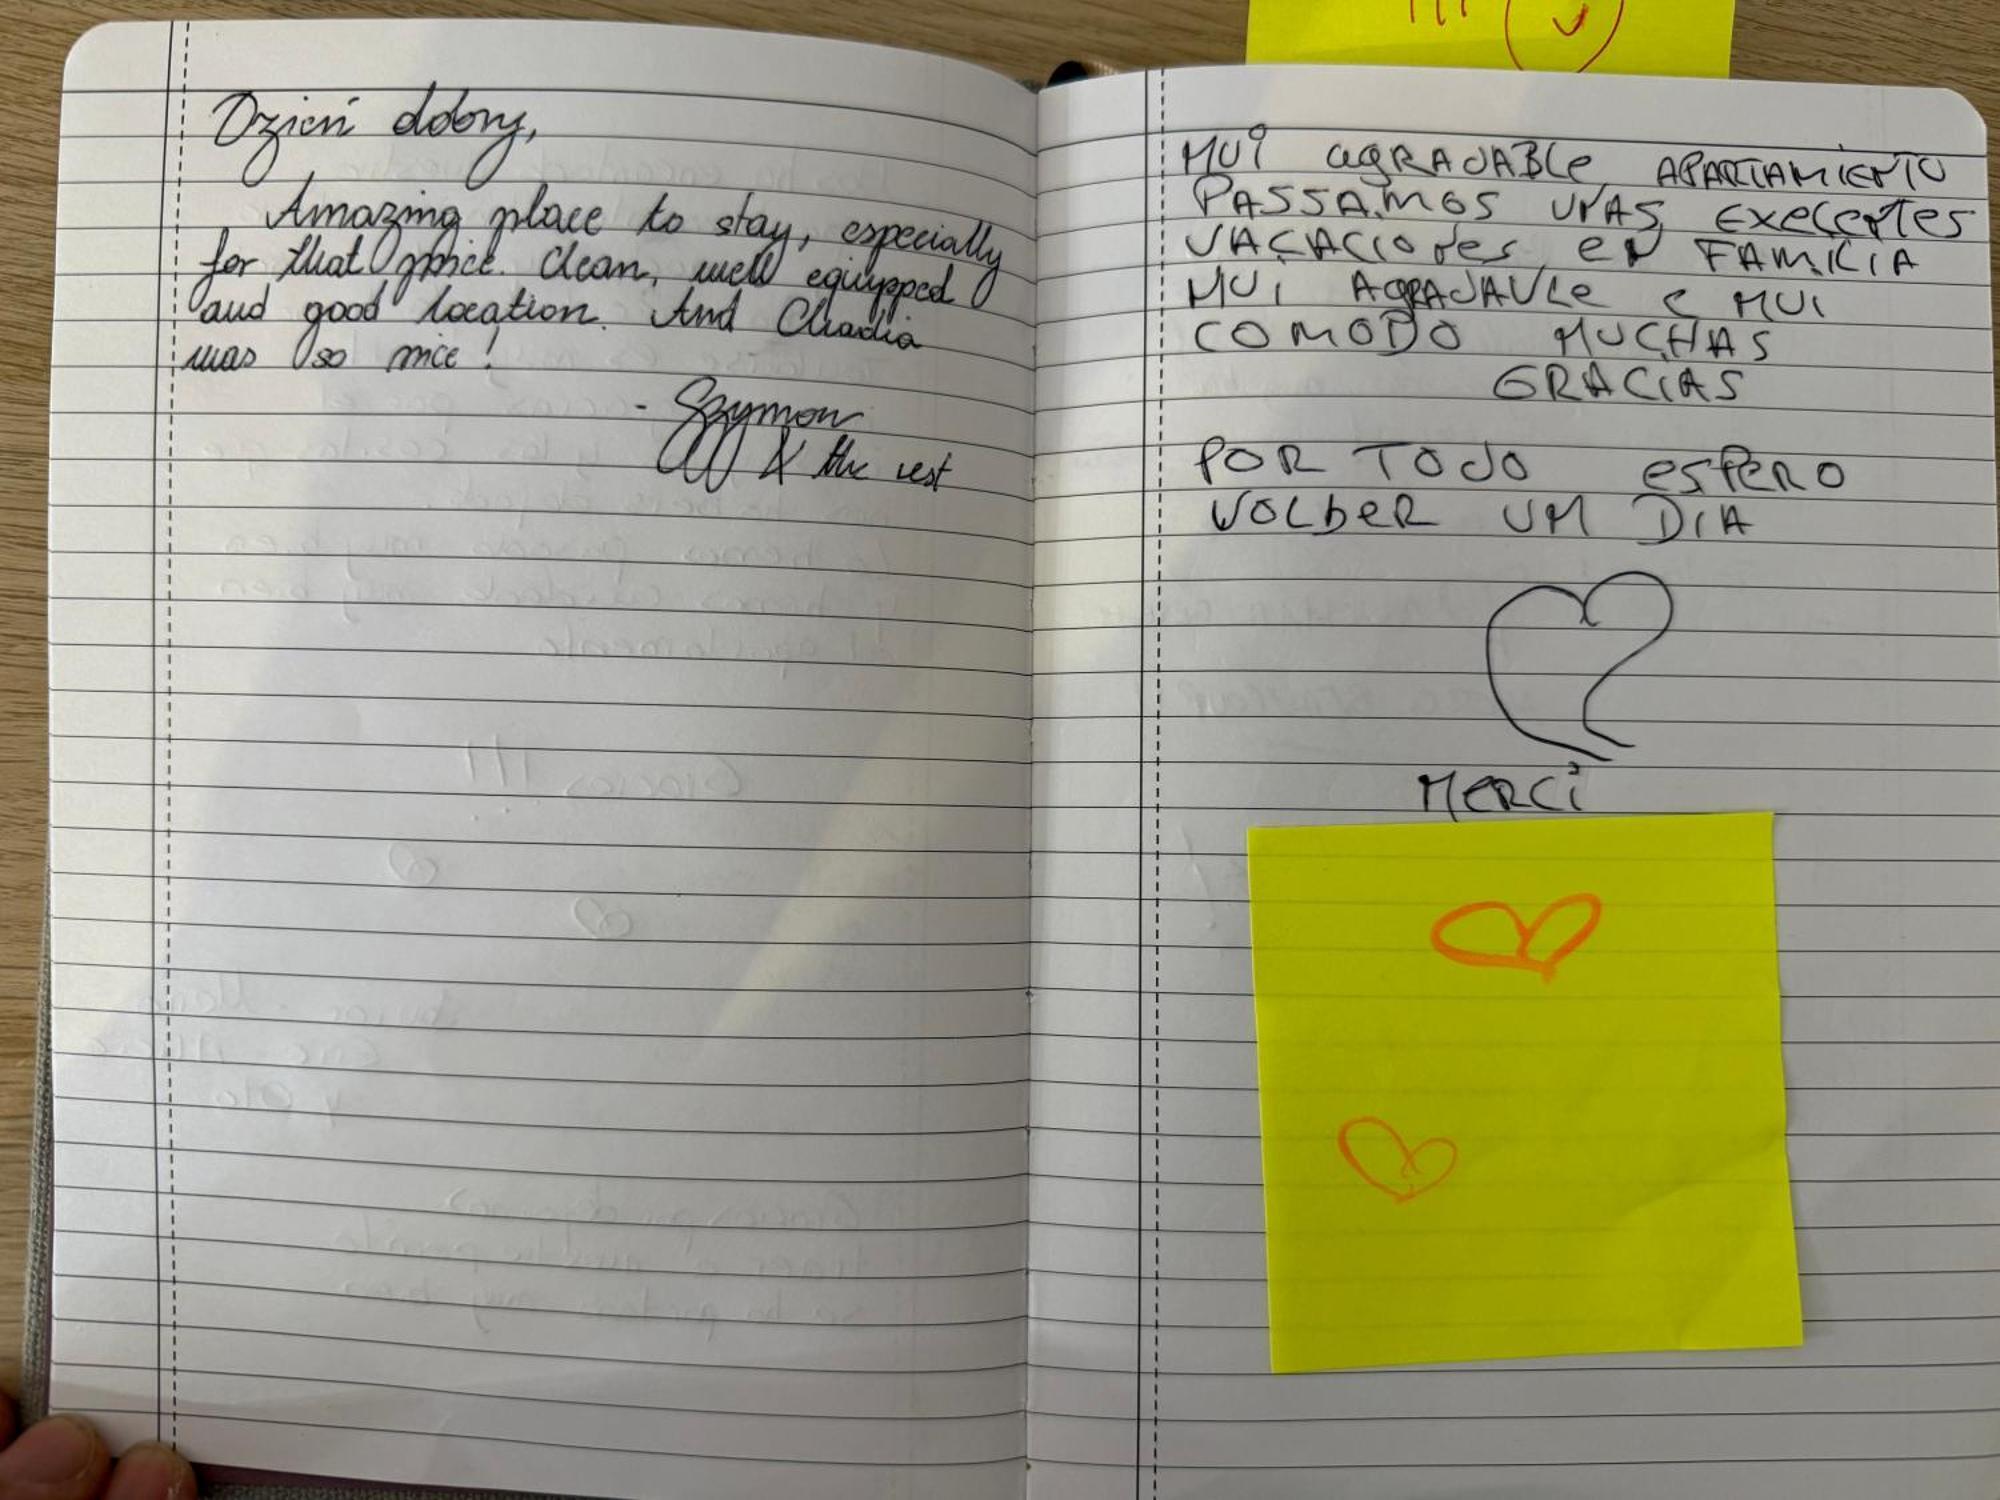 Dzień dobry,
Amazing place to stay, especially
for that price. Clean, well equipped
and good location. And Claudia
was so nice!
- Szymon
& the rest
MUI agRADABLe APARTAMiENTO
PASSAMOS UNAS EXeLeNTes
VACACIONes eN FAMILIA
MUI AgRADAVLe e MUI
COMODO MUCHAS
GRACIAS
POR TODO esPeRO
VOLbeR UM DIA
MeRCi